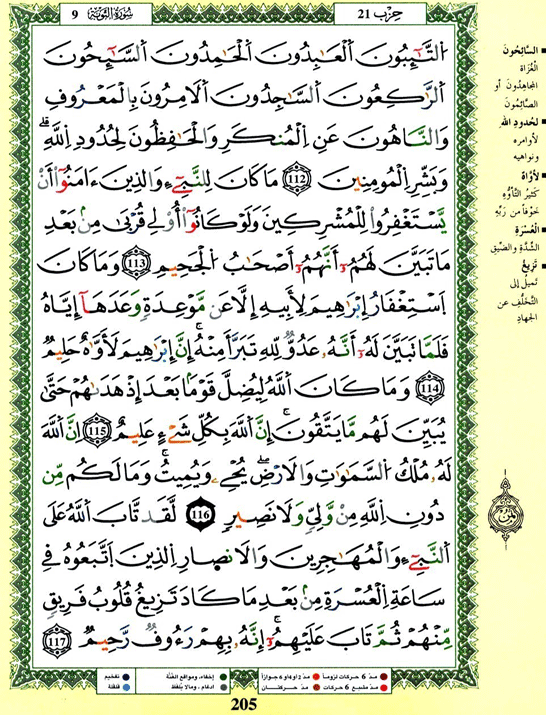 سُورَةُ التَّوْبَةِ 9
حِزْب 21
اَلتَّٰٓئِبُونَ اَلْعَٰبِدُونَ اَلْحَٰمِدُونَ اَلسَّٰٓئِحُونَ
اَلرَّٰكِعُونَ اَلسَّٰجِدُونَ اَلَامِرُونَ بِالْمَعْرُوفِ
وَالنَّاهُونَ عَنِ اِلْمُنكَرِ وَالْحَٰفِظُونَ لِحُدُودِ اِللَّهِۖ
وَبَشِّرِ اِلْمُومِنِينَ 112 مَا كَانَ لِلنَّبِيٓءِ وَالذِينَ ءَامَنُوٓاْ أَنْ
يَّسْتَغْفِرُواْ لِلْمُشْرِكِينَ وَلَوْ كَانُوٓاْ أُوْلِي قُرْبَىٰ مِنۢ بَعْدِ
مَا تَبَيَّنَ لَهُمُۥٓ أَنَّهُمُۥٓ أَصْحَٰبُ اُلْجَحِيمِ 113 وَمَا كَانَ
اَسْتِغْفَارُ إِبْرَٰهِيمَ لِأَبِيهِ إِلَّا عَن مَّوْعِدَةٍ وَعَدَهَآ إِيَّاهُ
فَلَمَّا تَبَيَّنَ لَهُۥٓ أَنَّهُۥ عَدُوٌّ لِلهِ تَبَرَّأَ مِنْهُۚ إِنَّ إِبْرَٰهِيمَ لَأَوَّٰهٌ حَلِيمٌ
114 وَمَا كَانَ اَللَّهُ لِيُضِلَّ قَوْمَاۢ بَعْدَ إِذْ هَدَىٰهُمْ حَتَّىٰ
يُبَيِّنَ لَهُم مَّا يَتَّقُونَۚ إِنَّ اَللَّهَ بِكُلِّ شَےْءٍ عَلِيمٌ 115 اِنَّ اَللَّهَ
لَهُۥ مُلْكُ اُلسَّمَٰوَٰتِ وَالَارْضِۖ يُحْيِۦ وَيُمِيتُۚ وَمَا لَكُم مِّن
دُونِ اِللَّهِ مِنْ وَّلِيٍّ وَلَا نَصِيرٍ 116 لَّقَد تَّابَ اَللَّهُ عَلَى
اَلنَّبِيٓءِ وَالْمُهَٰجِرِينَ وَالَانصِارِ اِلذِينَ اَتَّبَعُوهُ فِي
سَاعَةِ اِلْعُسْرَةِ مِنۢ بَعْدِ مَا كَادَ تَزِيغُ قُلُوبُ فَرِيقٍ
مِّنْهُمْ ثُمَّ تَابَ عَلَيْهِمُۥٓ إِنَّهُۥ بِهِمْ رَءُوفٌ رَّحِيمٌ 117
السَّائِحُونَ
الْغُزَاةُ
المُجَاهِدُونَ أو
الصَّائِمُونَ
لحُدودِ الله
لأوامره
ونواهيه
لأوّاهٌ
كَثِيرُ التَّأَوُّهِ
خَوْفاً من رَبِّهِ
العُسْرَةِ
الشِّدَّةِ والضِّيقِ
تَزيغُ
تَمِيلُ إلى
التَّخَلُّفِ عن
الجهادِ
ثمن
مدّ 6 حركات لزوماً مدّ 2 أو 4 أو 6 جوازاً إخفاء، ومواقع الغُنَّة تفخيم
مدّ مشبع 6 حركات مدّ حركتان إدغام، وما لا يُلفَظ قلقلة
205